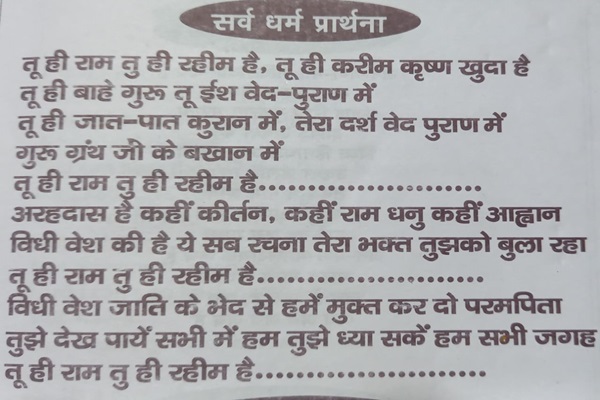 सर्व धर्म प्रार्थना
तू ही राम तु ही रहीम है, तू ही करीम कृष्ण खुदा है
तू ही बाहे गुरू तू ईश वेद-पुराण में
तू ही जात-पात कुरान में, तेरा दर्श वेद पुराण में
गुरू ग्रंथ जी के बखान में
तू ही राम तु ही रहीम है..............................
अरहदास है कहीं कीर्तन, कहीं राम धनु कहीं आह्वान
विधी वेश की है ये सब रचना तेरा भक्त तुझको बुला रहा
तू ही राम तु ही रहीम है..............................
विधी वेश जाति के भेद से हमें मुक्त कर दो परमपिता
तुझे देख पायें सभी में हम तुझे ध्या सकें हम सभी जगह
तू ही राम तु ही रहीम है..............................